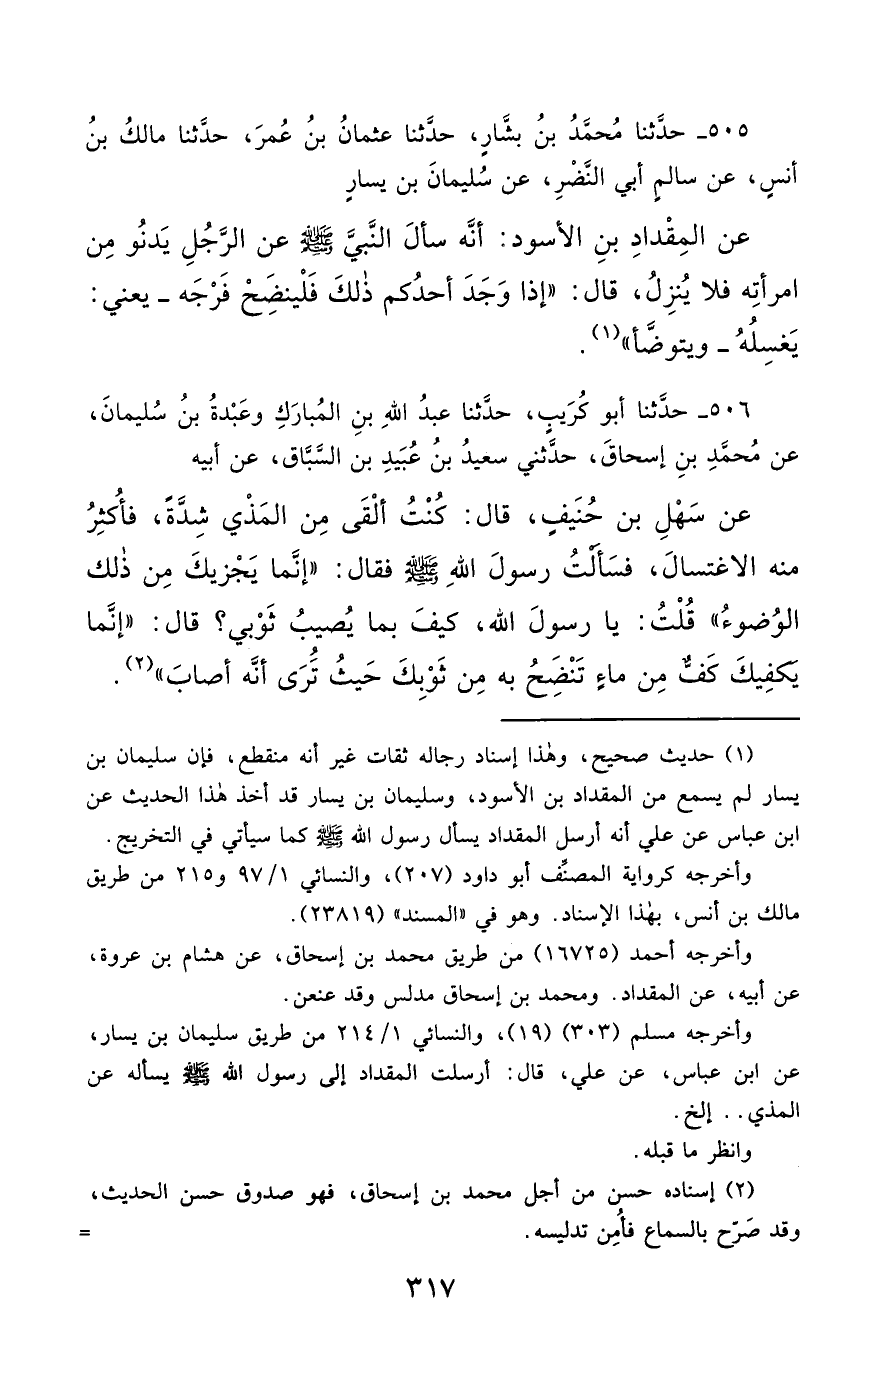 ٥٠٥ـ حدَّثنا مُحمَّدُ بنُ بشَّارٍ، حدَّثنا عثمانُ بنُ عُمرَ، حدَّثنا مالكُ بنُ
أنسٍ، عن سالمٍ أبي النَّضْرِ، عن سُليمانَ بن يسارٍ
عن المِقْدادِ بنِ الأسود: أنَّه سألَ النَّبيَّ ﷺ عن الرَّجُلِ يَدنُو مِن
امرأتِه فلا يُنزِلُ، قال: «إذا وَجَدَ أحدُكم ذٰلكَ فَلْينضَِحْ فَرْجَه ـ يعني:
يَغسِلُهُ ـ ويتوضَّأ»(١).
٥٠٦ـ حدَّثنا أبو كُرَيبٍ، حدَّثنا عبدُ اللهِ بنِ المُبارَكِ وعَبْدةُ بنُ سُليمانَ،
عن مُحمَّدِ بنِ إسحاقَ، حدَّثني سعيدُ بنُ عُبَيدِ بن السَّبَّاق، عن أبيه
عن سَهْلِ بن حُنَيفٍ، قال: كُنْتُ ألْقَى مِن المَذْي شِدَّةً، فأُكثِرُ
منه الاغتسالَ، فسَألْتُ رسولَ اللهِ ﷺ فقال: «إنَّما يَجْزيكَ مِن ذٰلك
الوُضوءُ» قُلْتُ: يا رسولَ الله، كيفَ بما يُصيبُ ثَوْبي؟ قال: «إنَّما
يَكفِيكَ كَفٌّ مِن ماءٍ تَنْضَِحُ به مِن ثَوْبِكَ حَيثُ تَُرَى أنَّه أصابَ»(٢).
(١) حديث صحيح، وهٰذا إسناد رجاله ثقات غير أنه منقطع، فإن سليمان بن
يسار لم يسمع من المقداد بن الأسود، وسليمان بن يسار قد أخذ هٰذا الحديث عن
ابن عباس عن علي أنه أرسل المقداد يسأل رسول الله ﷺ كما سيأتي في التخريج.
وأخرجه كرواية المصنِّف أبو داود (٢٠٧)، والنسائي ١/ ٩٧ و٢١٥ من طريق
مالك بن أنس، بهٰذا الإسناد. وهو في «المسند» (٢٣٨١٩).
وأخرجه أحمد (١٦٧٢٥) من طريق محمد بن إسحاق، عن هشام بن عروة،
عن أبيه، عن المقداد. ومحمد بن إسحاق مدلس وقد عنعن.
وأخرجه مسلم (٣٠٣) (١٩)، والنسائي ١/ ٢١٤ من طريق سليمان بن يسار،
عن ابن عباس، عن علي، قال: أرسلت المقداد إلى رسول الله ﷺ يسأله عن
المذي.. إلخ.
وانظر ما قبله.
(٢) إسناده حسن من أجل محمد بن إسحاق، فهو صدوق حسن الحديث،
وقد صَرّح بالسماع فأُمِن تدليسه. =
٣١٧